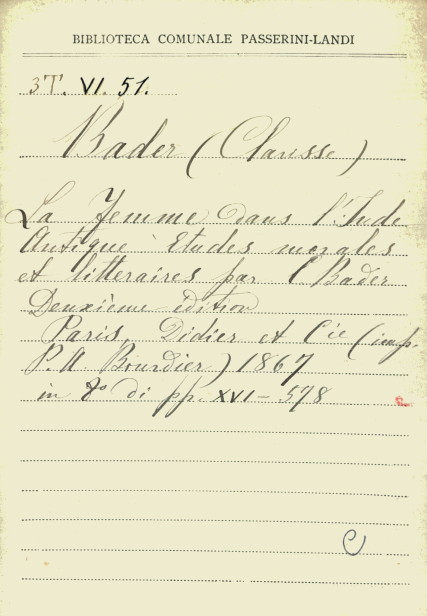 BIBLIOTECA COMUNALE PASSERINI-LANDI
3T. VI. 51.
Bader (Clarisse)
La Femme dans l'Inde
Antique Etudes morales
et litteraires par C Bader
Deuxième édition
Paris, Didier et Cie (imp.
P. A Bourdier) 1867
in 8º di pp. XVI - 578